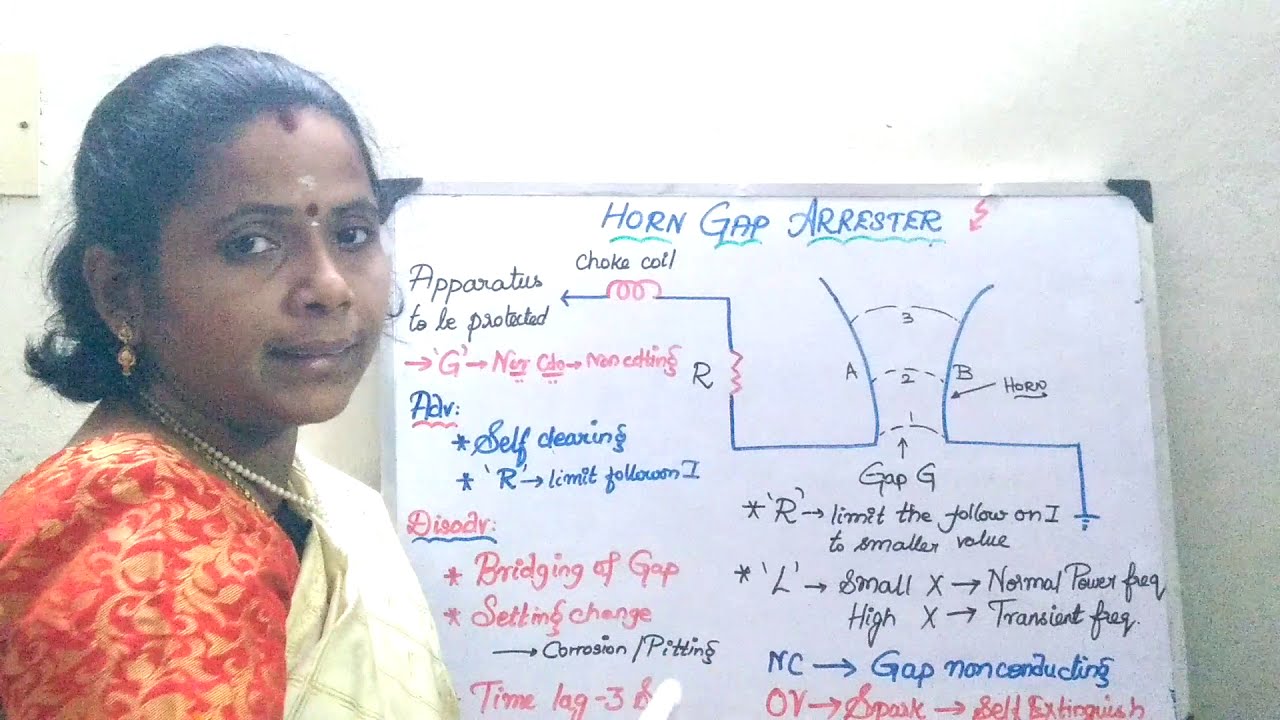 HORN GAP ARRESTER
Choke coil
Apparatus
to be protected
→ 'G' → Nor Cdn → Non cdting
R
A
B
3
2
1
Horn
Gap G
Adv:
* Self clearing
* 'R' → limit follow on I
Disadv:
* Bridging of Gap
* Setting change
→ Corrosion/Pitting
Time lag - 3 S
* 'R' → limit the follow on I
to smaller value
* 'L' → Small X → Normal Power freq
High X → Transient freq.
NC → Gap nonconducting
OV → Spark → Self Extinguish